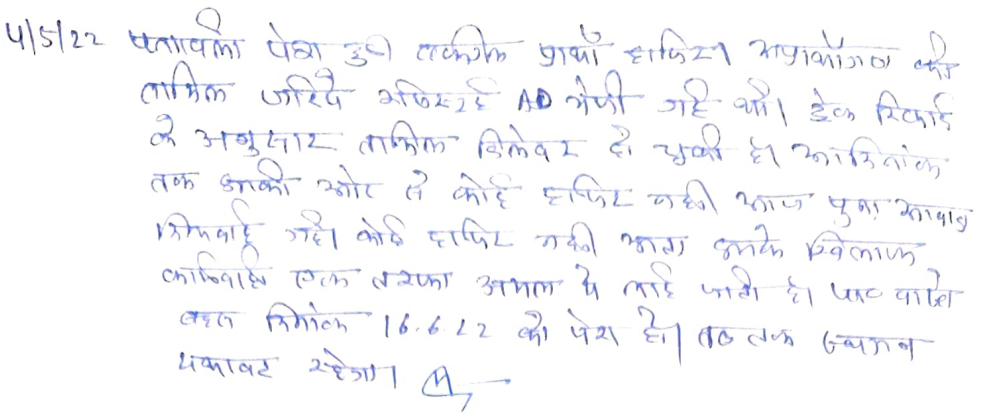 4/5/22 पत्रावली पेश हुई वकील प्रार्थी हाजिर। अप्रार्थीगण की
तामिल जरिये रजिस्टर्ड AD भेजी गई थी। ट्रेक रिकार्ड
के अनुसार तामिल डिलेवर हो चुकी है। आजदिनांक
तक उनकी ओर से कोई हाजिर नही आज पुनः आवाज
दिलवाई गई। कोई हाजिर नही अतः उनके खिलाफ
कार्यवाही एक तरफा अमल मे लाई जाती है। वास्ते
बहस दिनांक 16.6.22 को पेश हो। तब तक स्थगन
यथावत रहेगा।